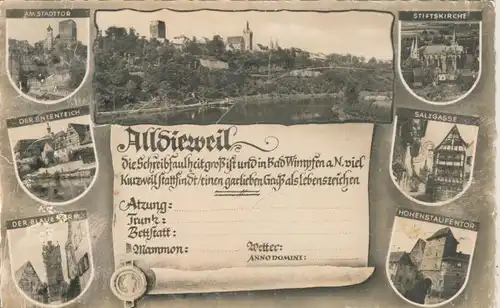 AM STADTTOR
STIFTSKIRCHE
DER ENTENTEICH
SALZGASSE
DER BLAUE TURM
HOHENSTAUFENTOR
Alldieweil
die Schreibfaulheit groß ist und in Bad Wimpfen a.N. viel
Kurzweil stattfindt/einen garlieben Gruß als Lebenszeichen
Atzung:
Trunk:
Bettstatt:
Mammon:
Wetter:
ANNO DOMINI: